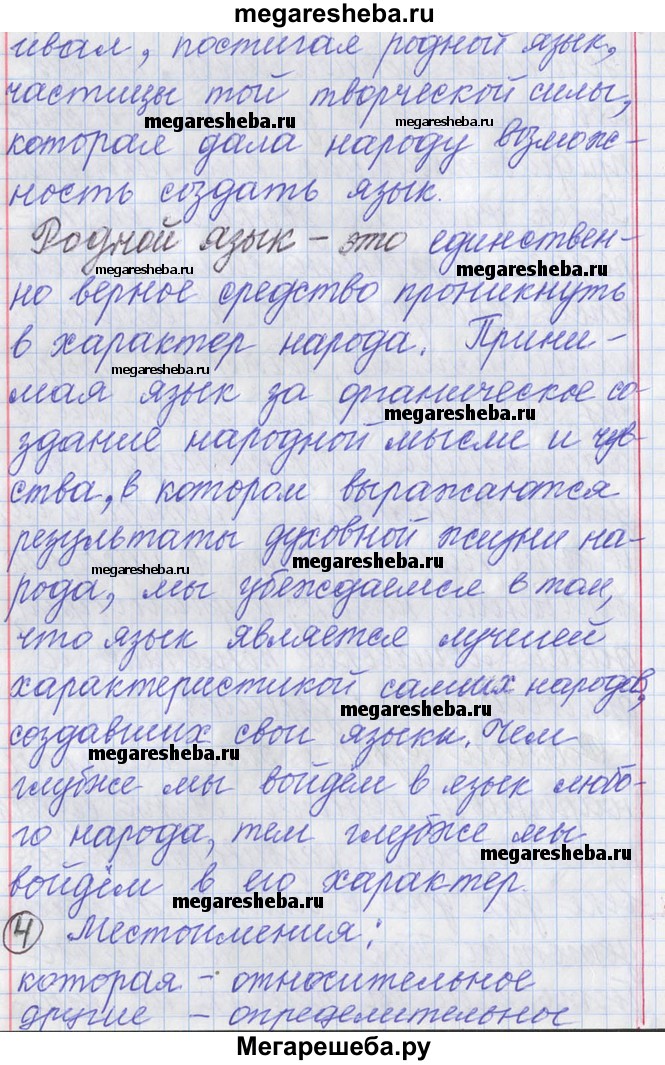 megaresheba.ru
ивал, постигал родной язык,
частицы той творческой силы,
megaresheba.ru
megaresheba.ru
которая дала народу возмож-
ность создать язык.
Родной язык - это единствен-
megaresheba.ru
megaresheba.ru
но верное средство проникнуть
в характер народа. Прини-
megaresheba.ru
мая язык за органическое со-
megaresheba.ru
здание народной мысли и чув-
ства, в котором выражаются
результаты духовной жизни на-
megaresheba.ru
megaresheba.ru
рода, мы убеждаемся в том,
что язык является лучшей
характеристикой самих народов,
megaresheba.ru
создавших свои языки. Чем
megaresheba.ru
глубже мы войдём в язык любо-
го народа, тем глубже мы
megaresheba.ru
войдём в его характер.
megaresheba.ru
4 Местоимения:
которая - относительное
другие - определительное
Мегарешеба.ру